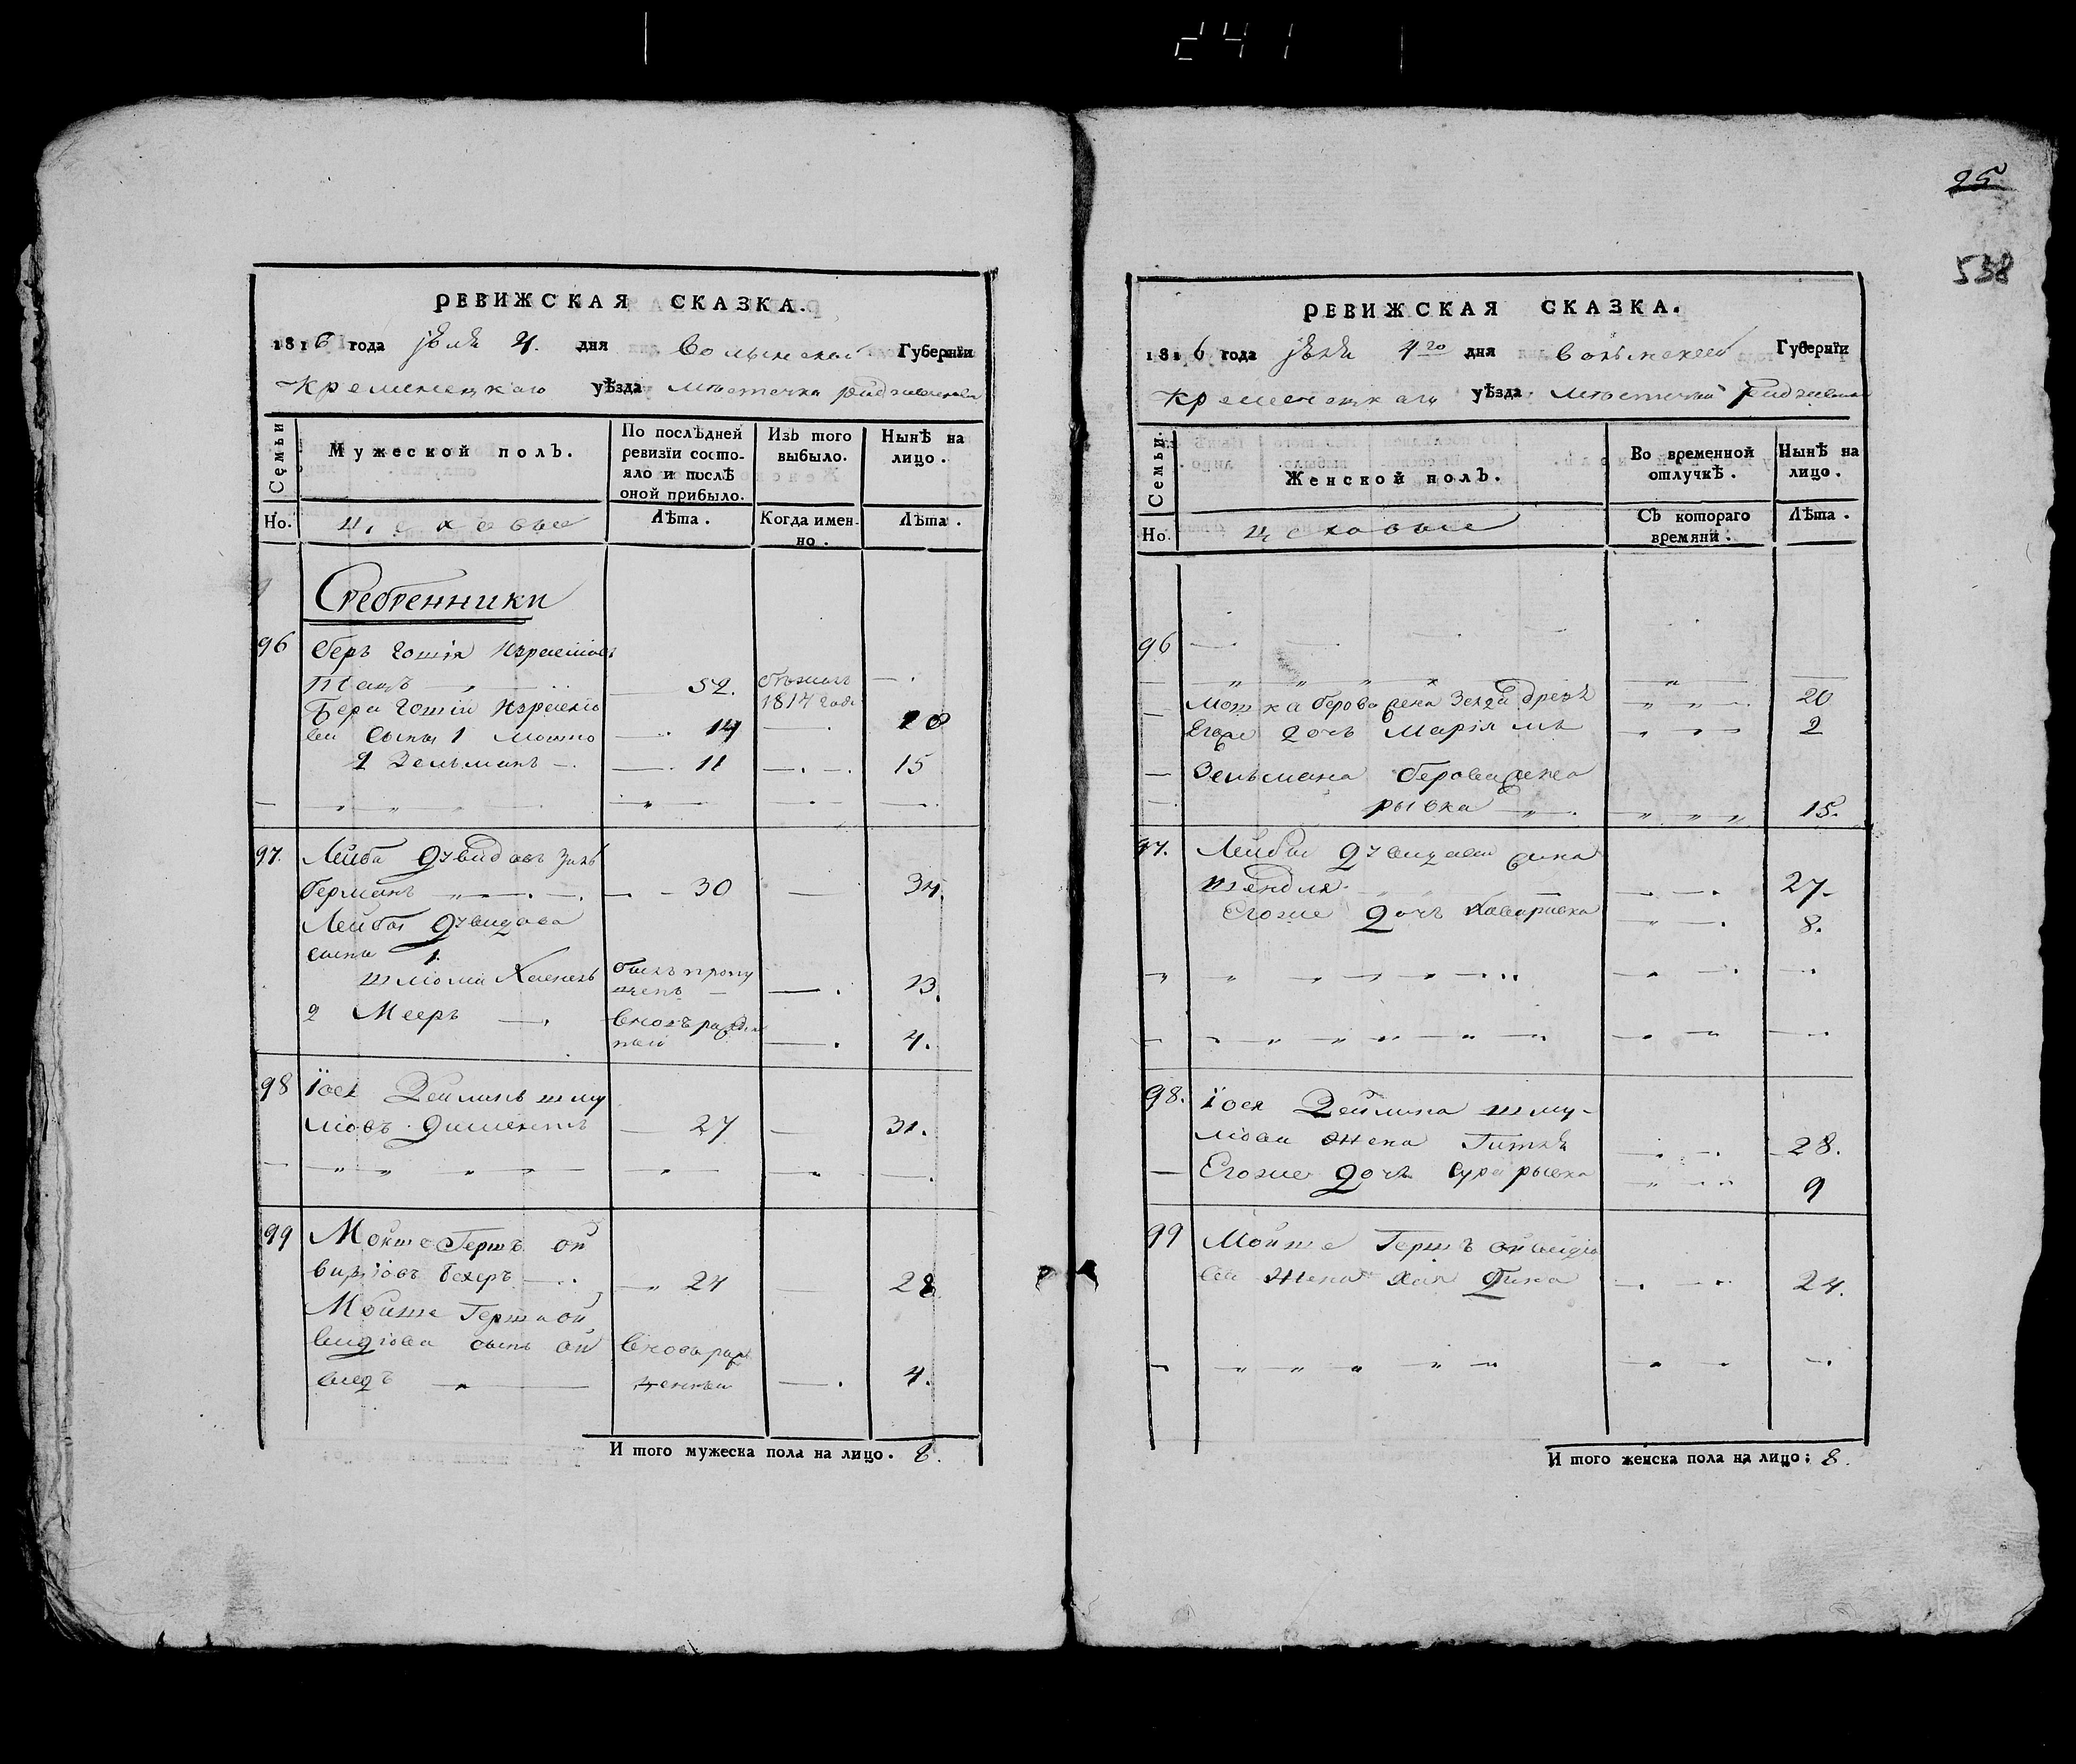 241
25
538
РЕВИЖСКАЯ СКАЗКА.
1816 года 4. дня Волынской Губернїи
Кременецкаго уѣзда мѣстечка
Семьи
Мужеской полъ.
По послѣдней ревизїи состояло и послѣ оной прибыло.
Изъ того выбыло.
Нынѣ на лицо.
Но. цеховые Лѣта. Когда именно. Лѣта.
Сребренники
96 Беръ
52. 1814 года —.
Бера
сыны 1 Мошко 14 — 20
2 Зельманъ — 11 —.—. 15
97. Лейба Дувидовъ Зиль
берманъ — 30 — 34.
Лейбы Дувидова
сыны 1.
Шлома былъ пропу
щенъ — —. 13.
2 Мееръ —. вновь рожден
ный —. 4.
98 Іось Зейлинъ шму
ліовъ — 27 — 31.
99 Мойше Гершъ ой
Бехеръ —. 24 — 28
Мойше Герша ой
видіова сынъ ой вновь рож
видъ — денный —. 4.
И того мужеска пола на лицо. 8.
РЕВИЖСКАЯ СКАЗКА.
1816 года 4го дня Волынской Губернїи
Кременецкаго уѣзда мѣстечка
Семьи.
Женской полъ.
Во временной отлучкѣ.
Нынѣ на лицо.
Но. цеховые Съ котораго времяни. Лѣта.
96
Мошка берова жена 20
Егоже дочь Маріямъ 2
Зельмана берова жена
рывка —. 15.
97. Лейбы Дувидова жена
шендля 27.
Егоже дочь 8.
98. Іося Зейлина шму-
ліова жена Гитля 28.
Егоже дочь сура рывка 9
99 Мойше Гершъ ойвидіо
ва жена хая 24.
И того женска пола на лицо: 8.